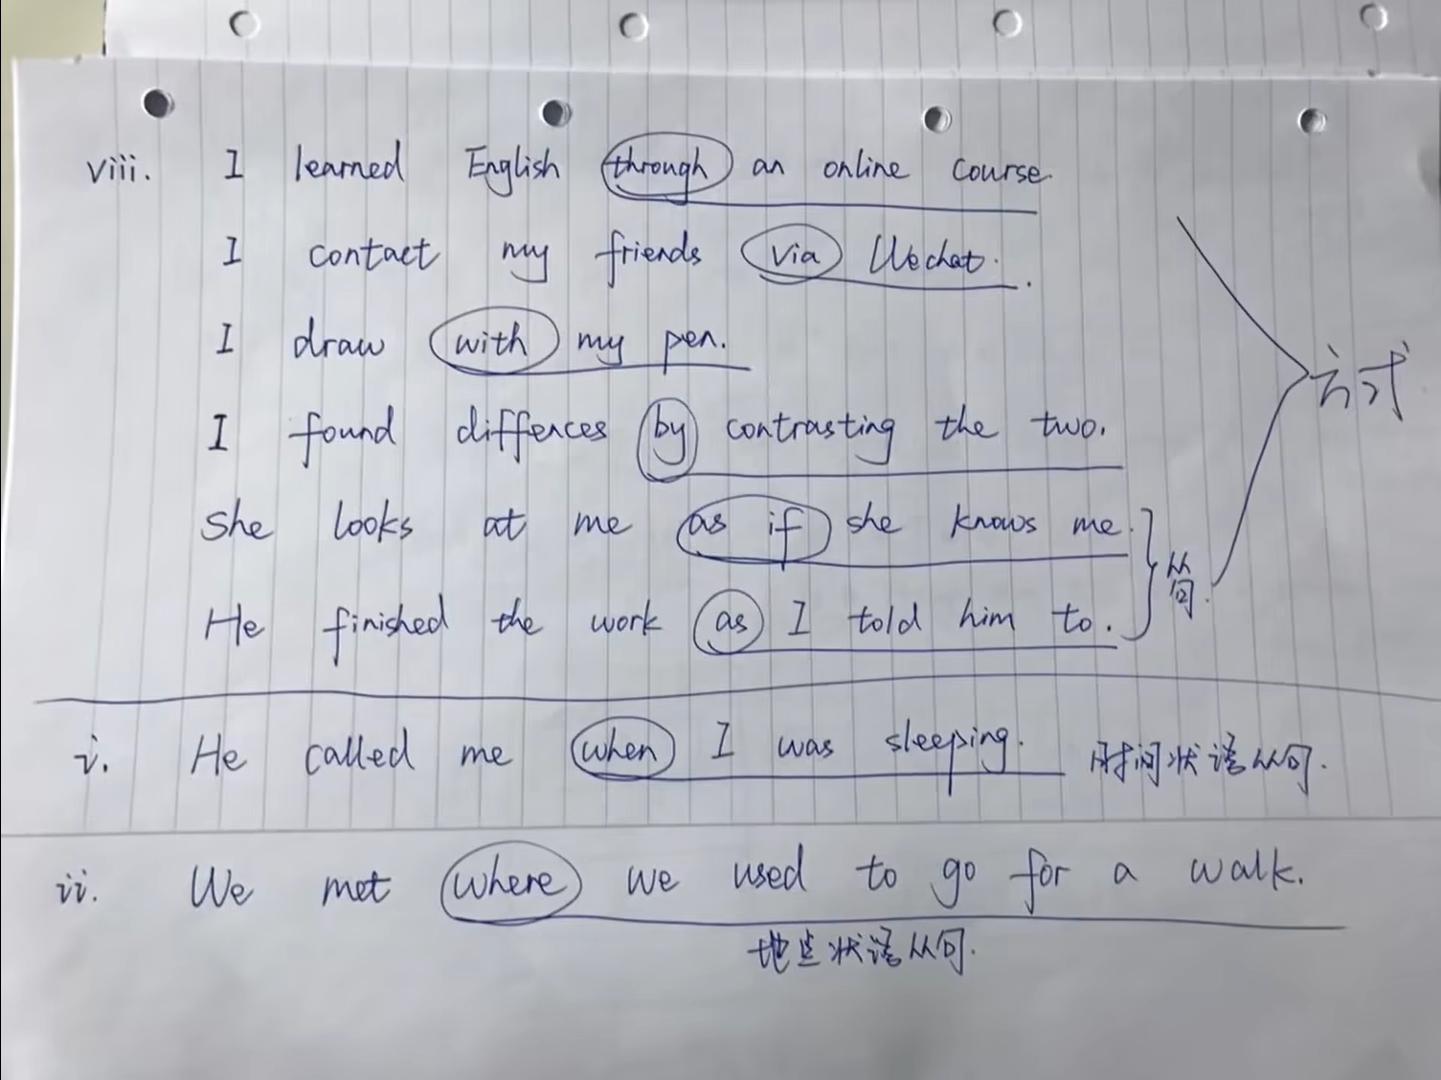 viii. I learned English through an online course.
I contact my friends via Wechat.
I draw with my pen.
I found diffences by contrasting the two.
方式
She looks at me as if she knows me.
从句.
He finished the work as I told him to.
i. He called me when I was sleeping. 时间状语从句.
ii. We met where we used to go for a walk.
地点状语从句.